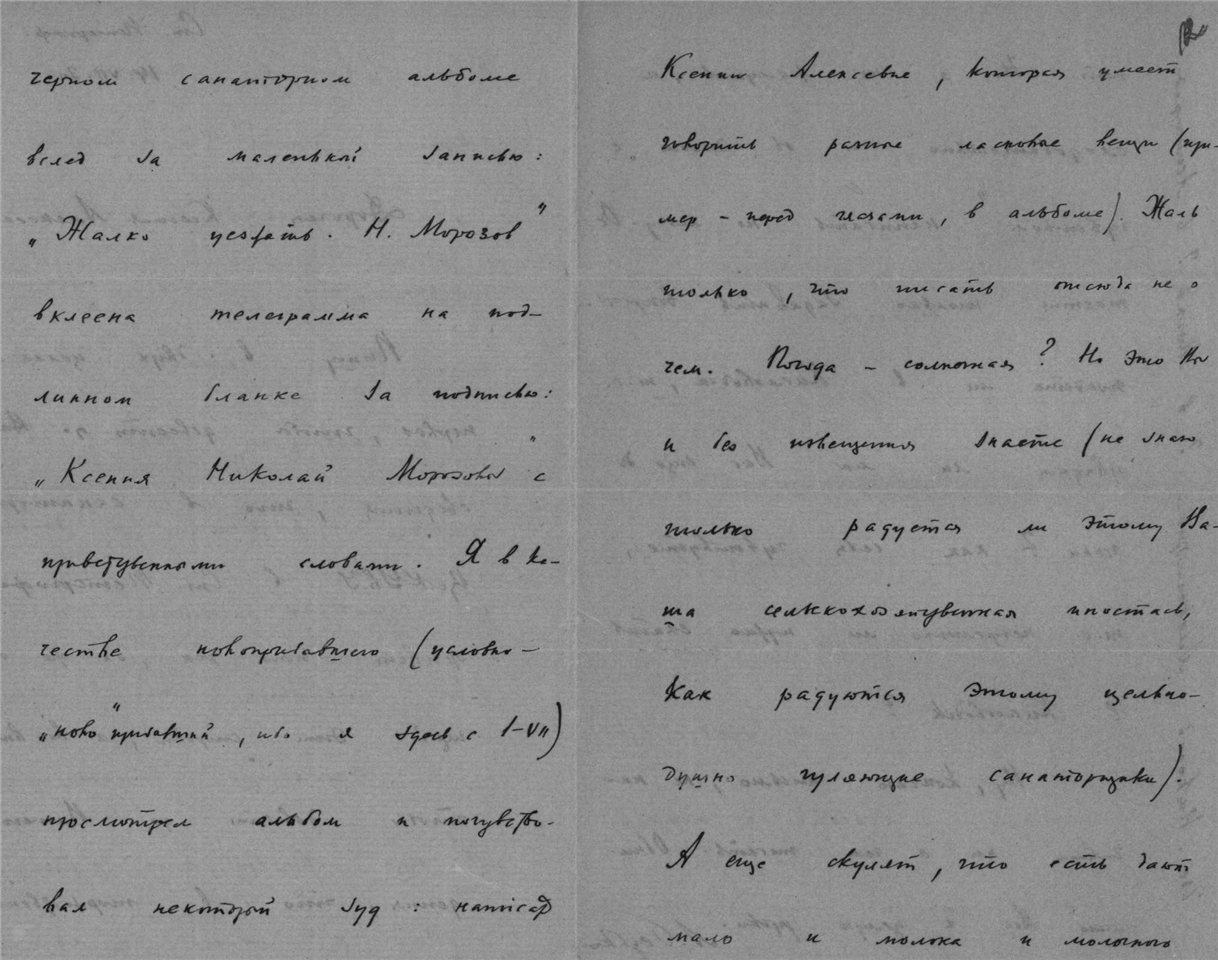 черном санаторном альбоме
вслед за маленькой записью:
„Жалко уезжать. Н. Морозов"
вклеена телеграмма на под-
линном бланке за подписью:
„Ксения Николай Морозовы" с
приветственными словами. Я в ка-
честве новоприбывшего (условно-
„ново"прибывший, ибо я здесь с 1-VII)
просмотрел альбом и почувство-
вал некоторый зуд: написать
Ксении Алексеевне, которая умеет
говорить разные ласковые вещи (при-
мер - перед глазами, в альбоме). Жаль
только, что писать отсюда не о
чем. Погода - солнечная? Но это Вы
и без извещения знаете (не знаю
только радуется ли этому Ва-
ша сельскохозяйственная ипостась,
как радуются этому цельно-
душно гуляющие санаторщики).
А еще скулят, что есть дают
мало и молока и молочного